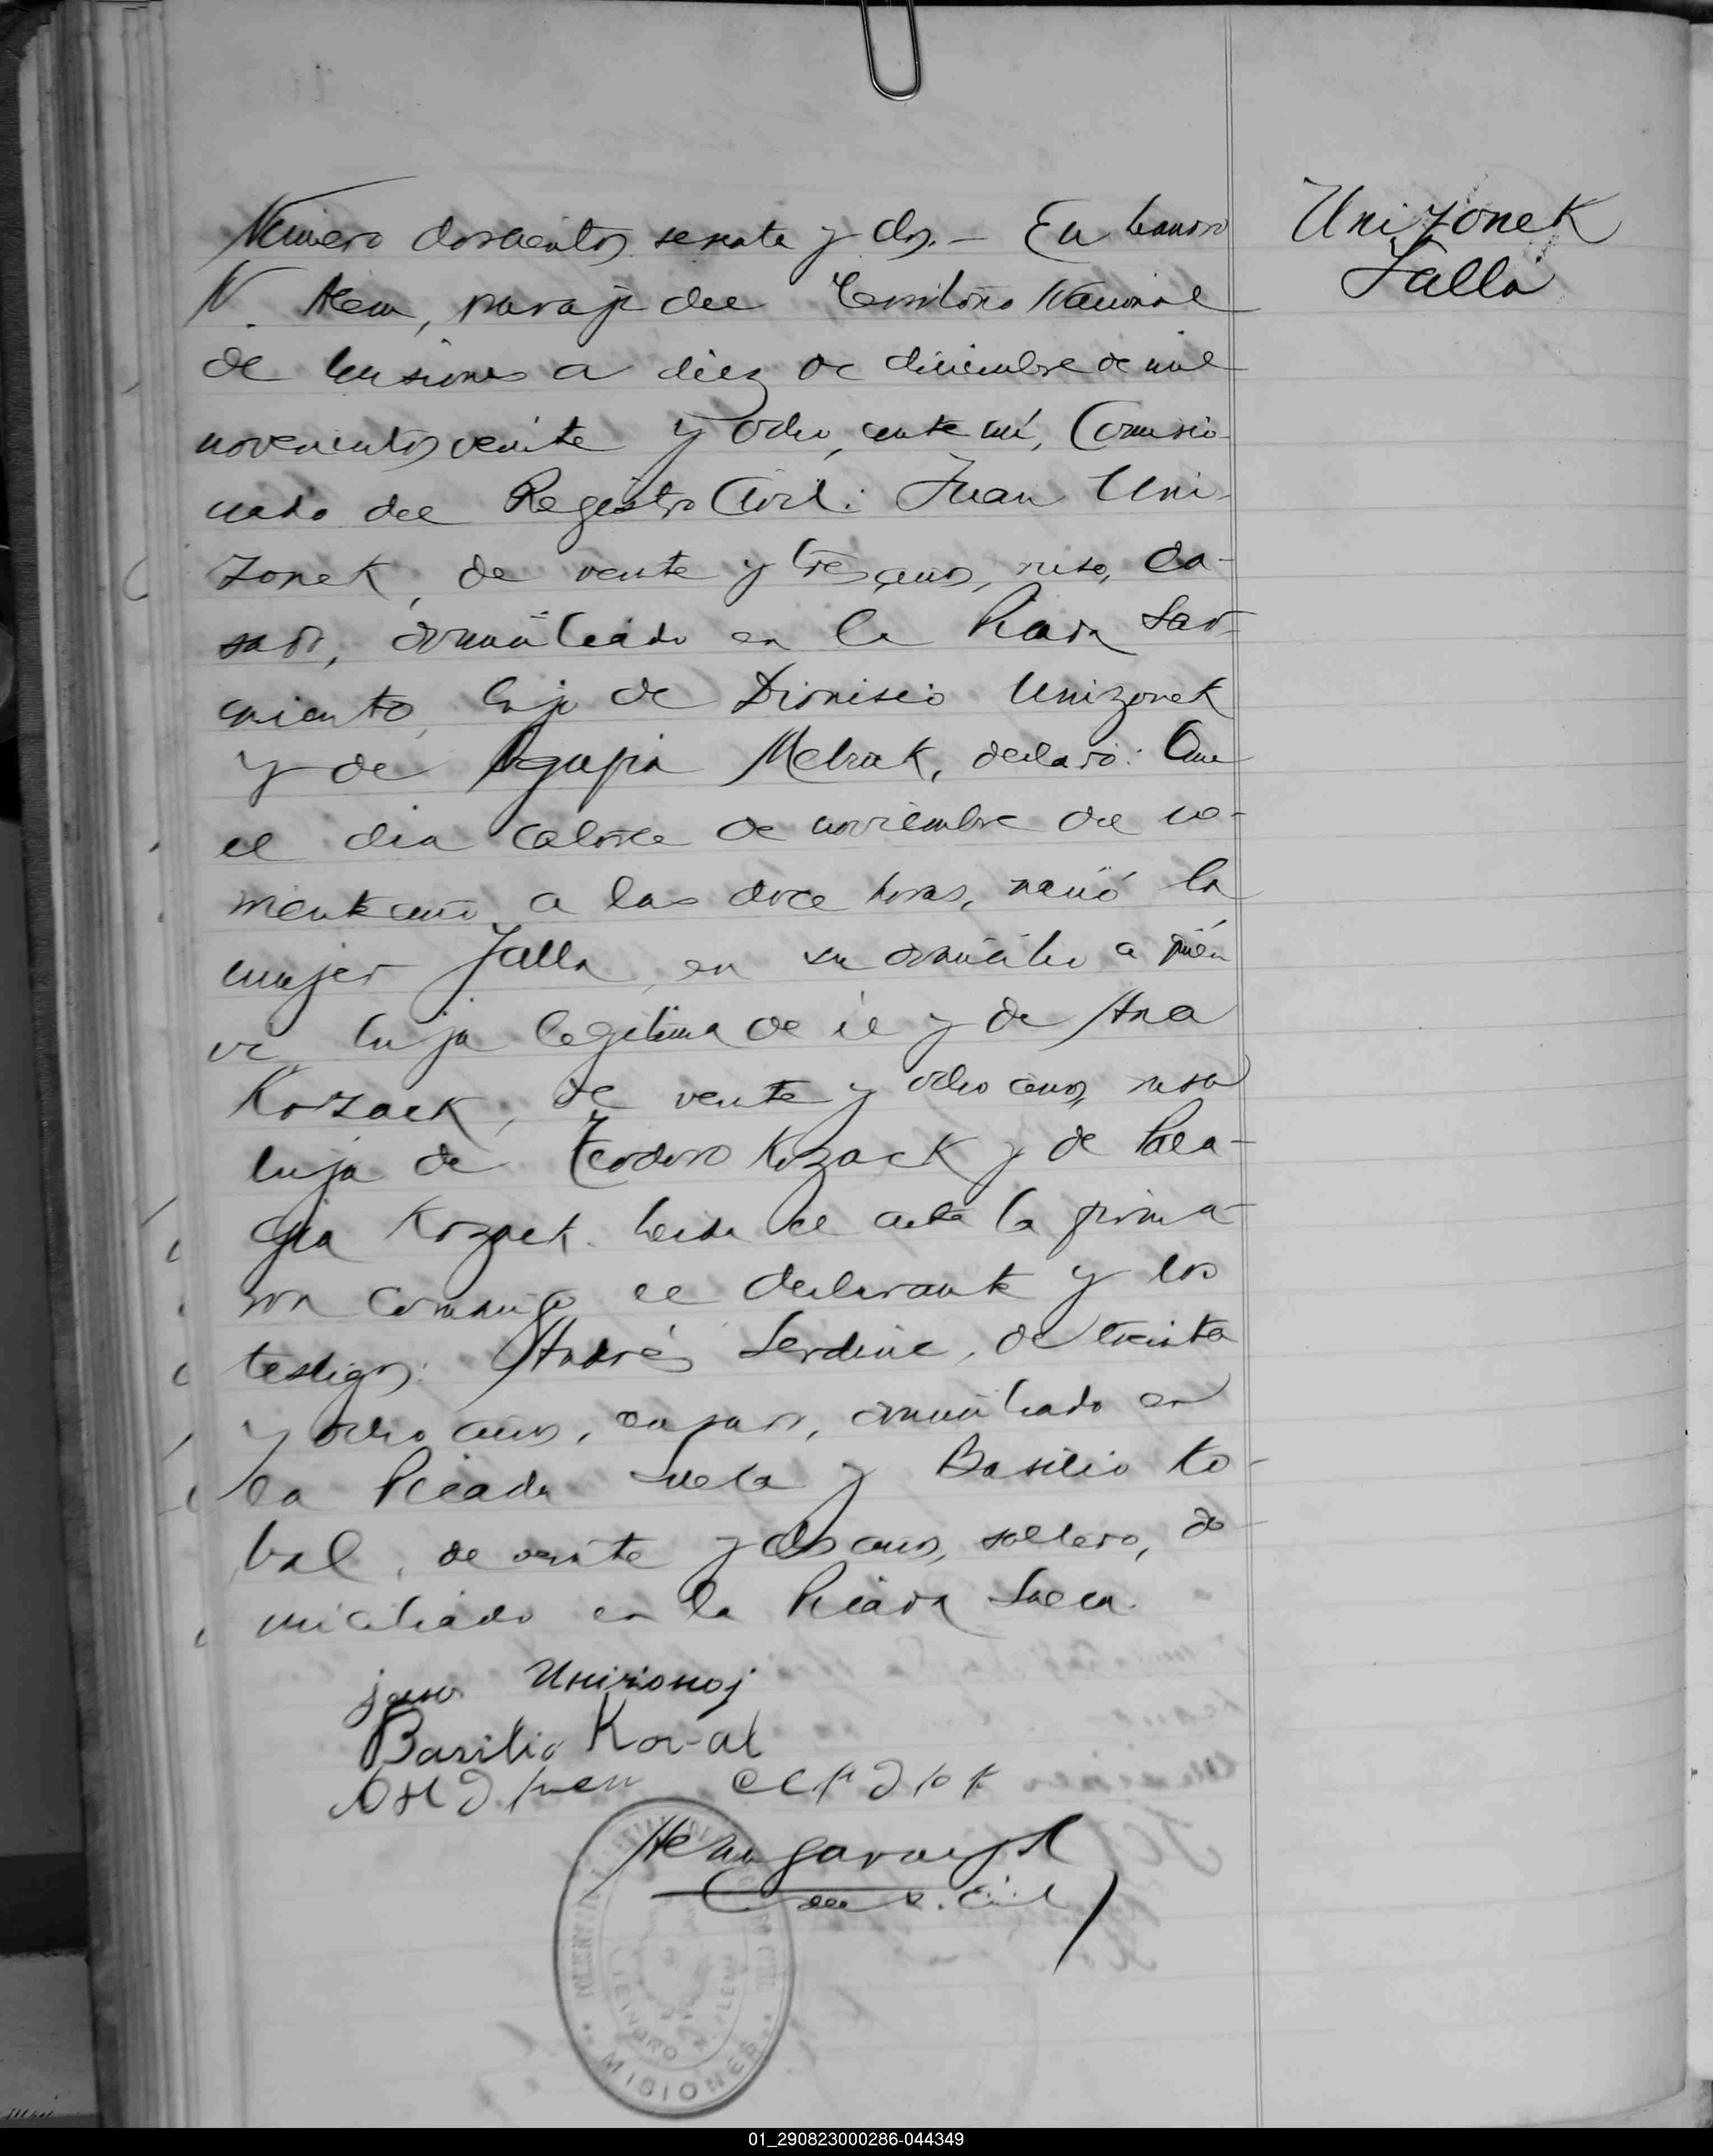 Número doscientos sesenta y dos. — En Leandro
N. Alem, paraje del Territorio Nacional
de Misiones a diez de diciembre de mil
novecientos veinte y ocho, ante mí, Comisio-
nado del Registro Civil: Juan Uni-
zonek, de veinte y tres años, ruso, ca-
sado, domiciliado en la Picada Sar-
miento, hijo de Dionisio Unizonek
y de Agapia Melnuk, declaró: Que
el dia catorce de noviembre del co-
rriente año a las doce horas, nació la
mujer Jalla, en su domicilio a quién
vi, hija legítima de él y de Ana
Kozack, de veinte y ocho años, rusa
hija de Teodoro Kozack y de Pala-
gia Kozack. Leida el acta la firma-
ron conmigo el declarante y los
testigos: Andrés Serdiuc, de treinta
y ocho años, casado, domiciliado en
la Picada Sueca y Basilio Ko-
bal, de veinte y dos años, soltero, do-
miciliado en la Picada Sueca.
Unizonek
Jalla
Basilio Koval
del R. Civil
LEANDRO N. ALEM
MISIONES
01_290823000286-044349